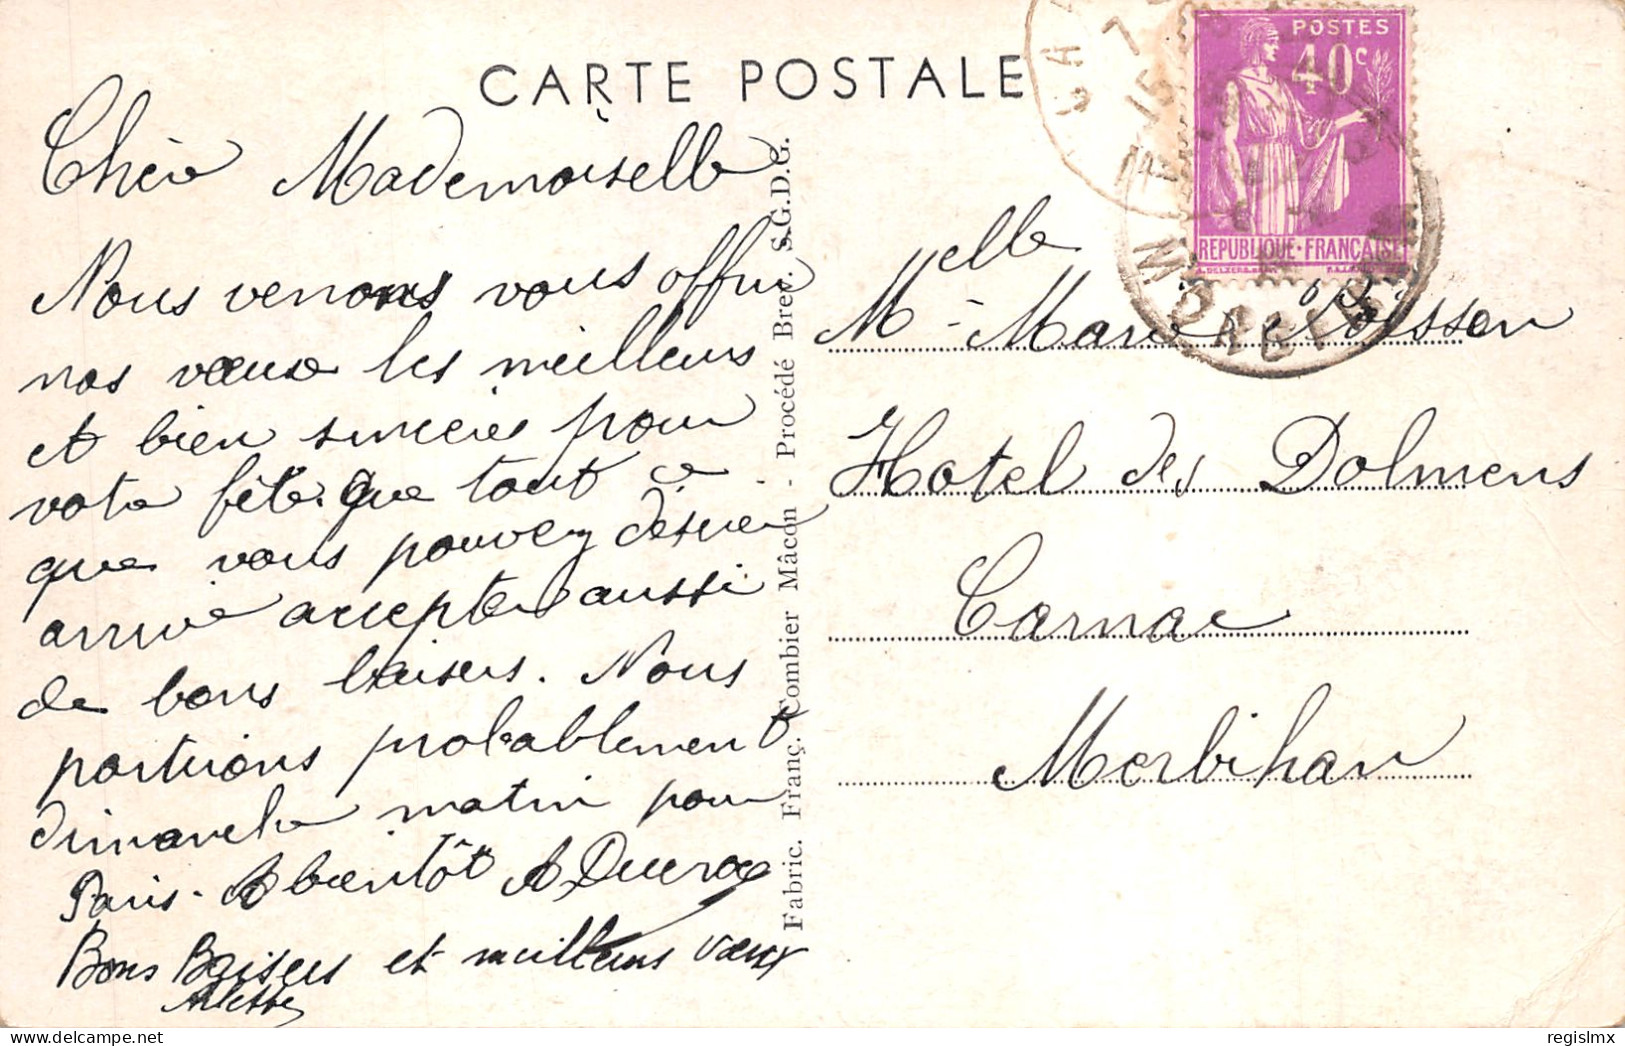 CARTE POSTALE
POSTES
40c
REPUBLIQUE·FRANÇAISE
MORBIHAN
Chère Mademoiselle
Nous venons vous offrir
nos vœux les meilleurs
et bien sincères pour
votre fête. Que tout ce
que vous pouvez désirer
arrive acceptez aussi
de bons baisers. Nous
partirons probablement
dimanche matin pour
Paris. A bientôt A
Bons Baisers et meilleurs vœux
Fabric. Franç. Combier Mâcon - Procédé Brev. S.G.D.G.
Melle Marie Poisson
Hotel des Dolmens
Carnac
Morbihan
regislmx